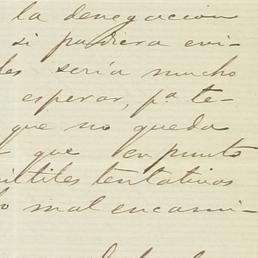 la denegacion
si pudiera evi-
les seria mucho
esperar, pª te-
que no queda
que en punto
utiles tentativas
mal encami-